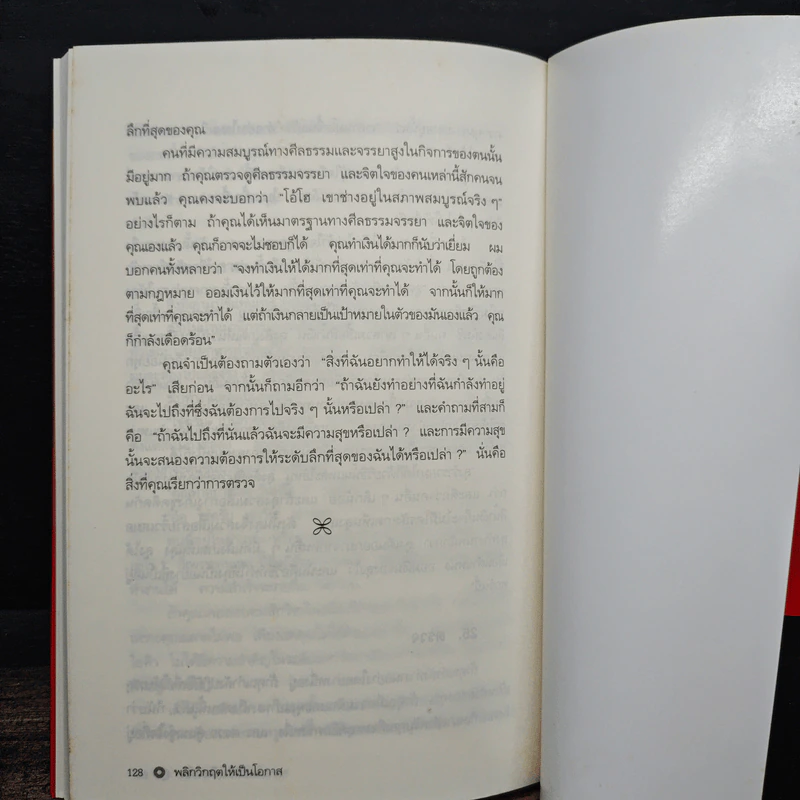 ลึกที่สุดของคุณ
คนที่มีความสมบูรณ์ทางศีลธรรมและจรรยาสูงในกิจการของตนนั้น
มีอยู่มาก ถ้าคุณตรวจดูศีลธรรมจรรยา และจิตใจของคนเหล่านี้สักคนจน
พบแล้ว คุณคงจะบอกว่า “โอ้โฮ เขาช่างอยู่ในสภาพสมบูรณ์จริง ๆ”
อย่างไรก็ตาม ถ้าคุณได้เห็นมาตรฐานทางศีลธรรมจรรยา และจิตใจของ
คุณเองแล้ว คุณก็อาจจะไม่ชอบก็ได้ คุณทำเงินได้มากก็นับว่าเยี่ยม ผม
บอกคนทั้งหลายว่า “จงทำเงินให้ได้มากที่สุดเท่าที่คุณจะทำได้ โดยถูกต้อง
ตามกฎหมาย ออมเงินไว้ให้มากที่สุดเท่าที่คุณจะทำได้ จากนั้นก็ให้มาก
ที่สุดเท่าที่คุณจะทำได้ แต่ถ้าเงินกลายเป็นเป้าหมายในตัวของมันเองแล้ว คุณ
ก็กำลังเดือดร้อน”
คุณจำเป็นต้องถามตัวเองว่า “สิ่งที่ฉันอยากทำให้ได้จริง ๆ นั้นคือ
อะไร” เสียก่อน จากนั้นก็ถามอีกว่า “ถ้าฉันยังทำอย่างที่ฉันกำลังทำอยู่
ฉันจะไปถึงที่ซึ่งฉันต้องการไปจริง ๆ นั้นหรือเปล่า ?” และคำถามที่สามก็
คือ “ถ้าฉันไปถึงที่นั่นแล้วฉันจะมีความสุขหรือเปล่า ? และการมีความสุข
นั้นจะสนองความต้องการให้ระดับลึกที่สุดของฉันได้หรือเปล่า ?” นั่นคือ
สิ่งที่คุณเรียกว่าการตรวจ
128 พลิกวิกฤตให้เป็นโอกาส